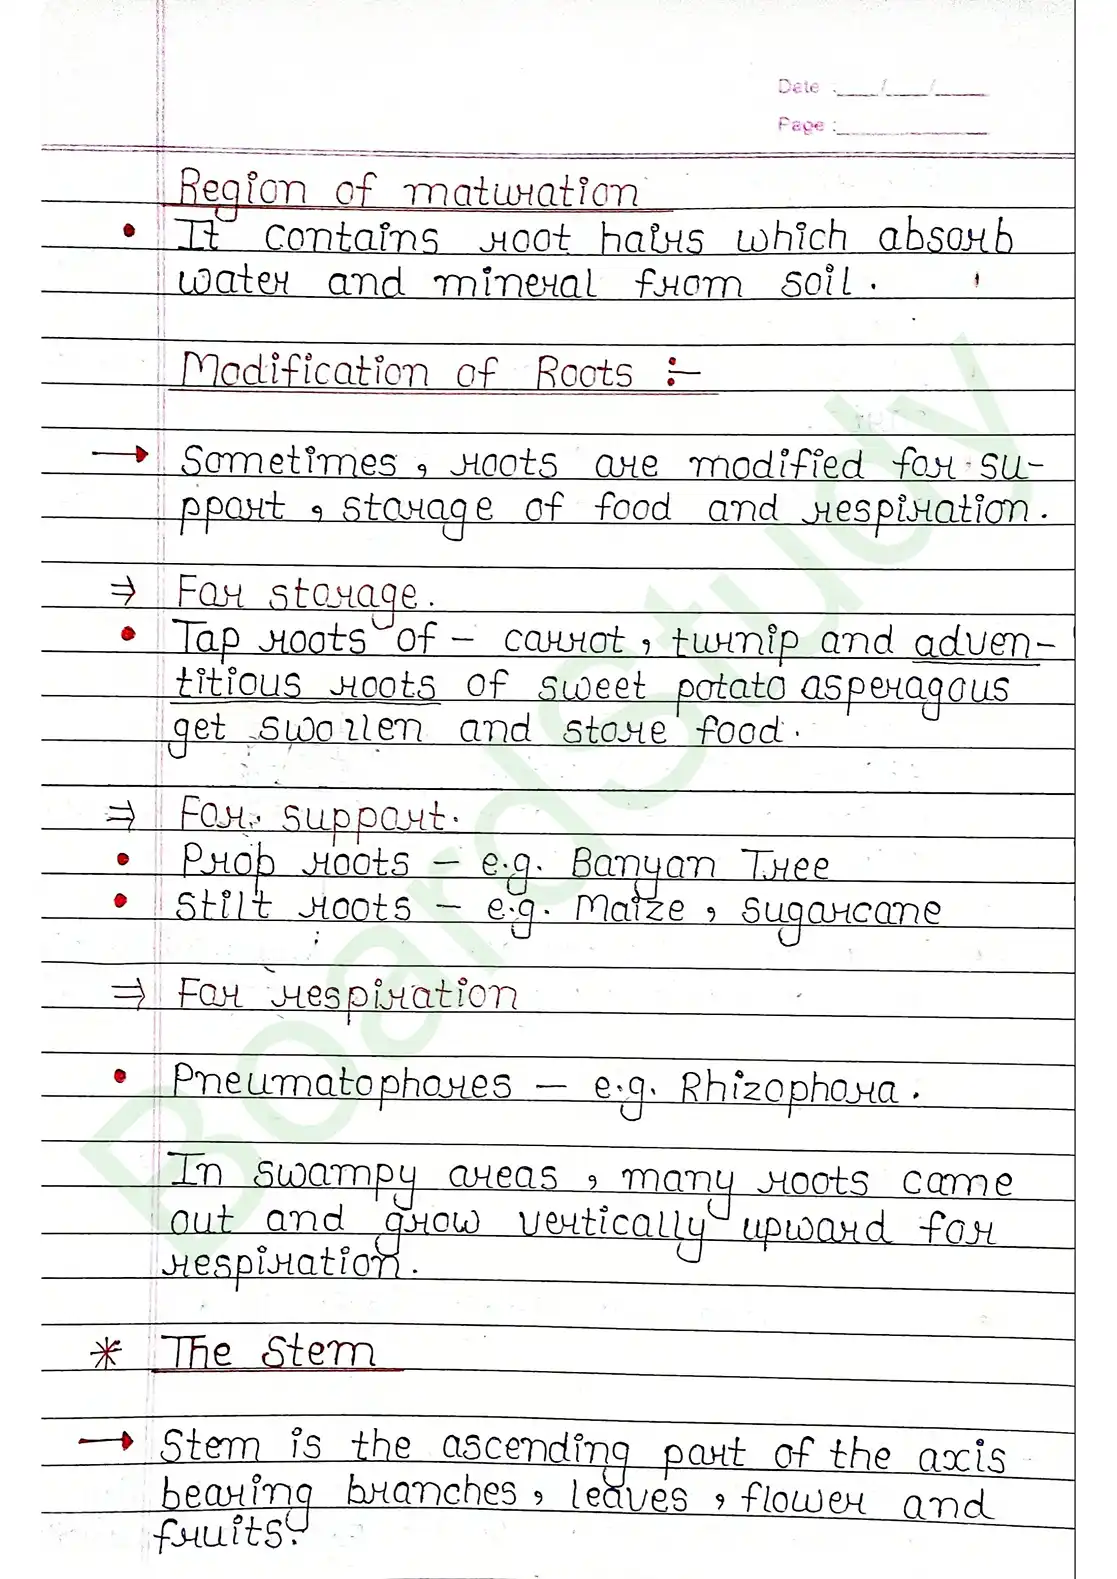 Date : __/__/__
Page : ______
Region of maturation
• It contains root hairs which absorb
water and mineral from soil.
Modification of Roots :-
→ Sometimes, roots are modified for su-
pport, storage of food and respiration.
⇒ For storage.
• Tap roots of - carrot, turnip and adven-
titious roots of sweet potato asperagous
get swollen and store food.
⇒ For support.
• Prop roots - e.g. Banyan Tree
• Stilt roots - e.g. Maize, sugarcane
⇒ For respiration
• Pneumatophores - e.g. Rhizophora.
In swampy areas, many roots come
out and grow vertically upward for
respiration.
* The Stem
→ Stem is the ascending part of the axis
bearing branches, leaves, flower and
fruits.
BoardStudy